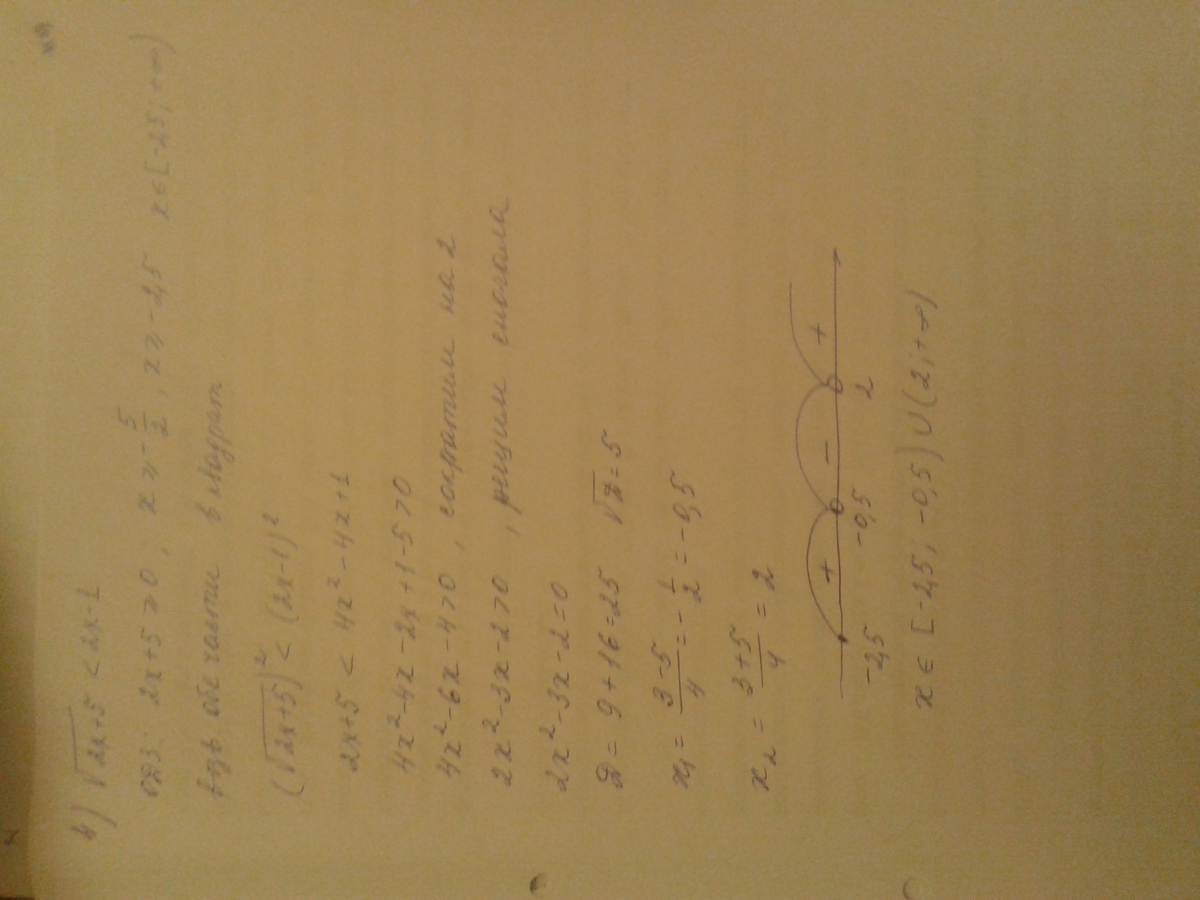 4) √(2x+5) < 2x-1
ОДЗ: 2x+5 ⩾ 0, x ⩾ -5/2, x ⩾ -2,5 x ∈ [-2,5, +∞)
обе части в квадрат
(√(2x+5))² < (2x-1)²
2x+5 < 4x²-4x+1
4x²-4x-2x+1-5>0
4x²-6x-4>0, сократим на 2
2x²-3x-2>0, решим сначала
2x²-3x-2=0
D = 9+16=25 √D=5
x₁ = (3-5)/4 = -1/2 = -0,5
x₂ = (3+5)/4 = 2
+ - +
-2,5 -0,5 2
x ∈ [-2,5; -0,5) ∪ (2, +∞)